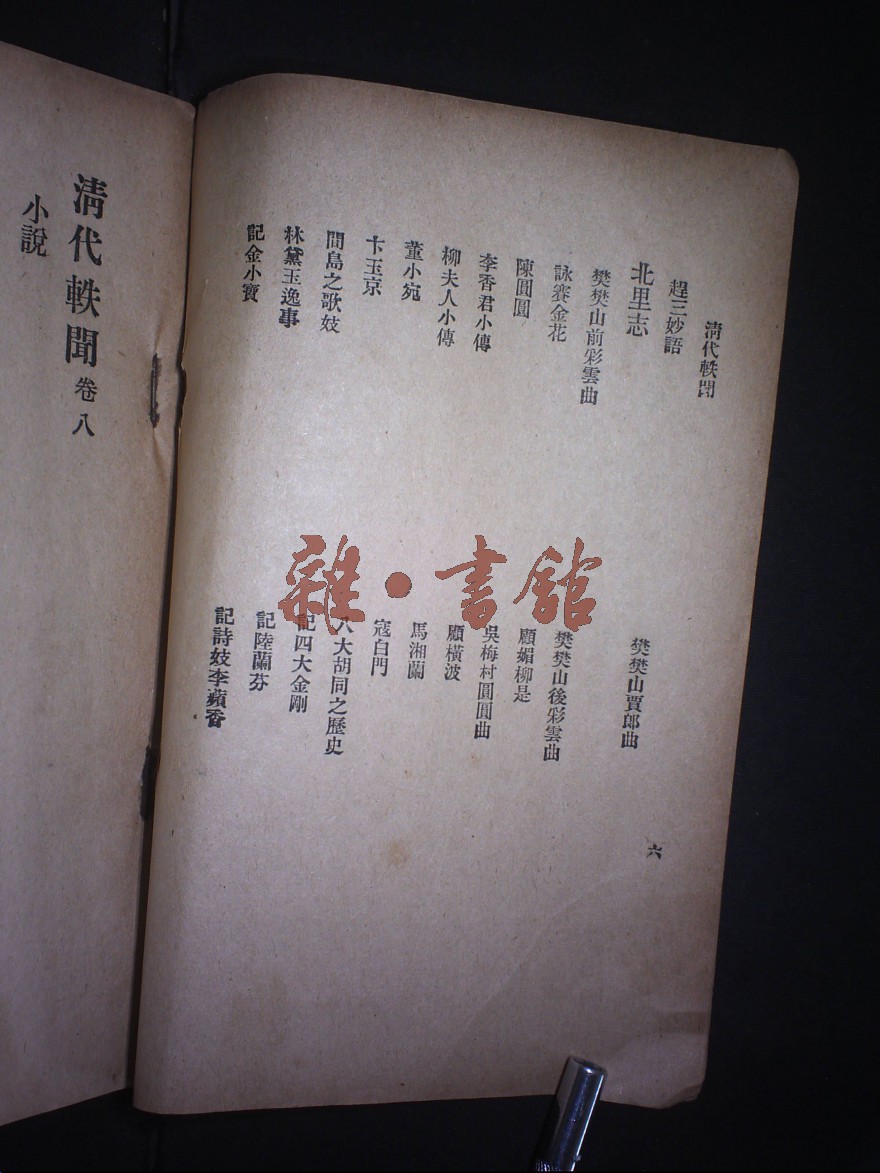 清代軼聞
趕三妙語
樊樊山賈郎曲
六
北里志
樊樊山前彩雲曲
樊樊山後彩雲曲
詠賽金花
顧媚柳是
陳圓圓
吳梅村圓圓曲
李香君小傳
顧橫波
柳夫人小傳
馬湘蘭
董小宛
寇白門
卞玉京
八大胡同之歷史
間島之歌妓
記四大金剛
林黛玉逸事
記陸蘭芬
記金小寶
記詩妓李蘋香
清代軼聞 卷八
小說
雜·書館